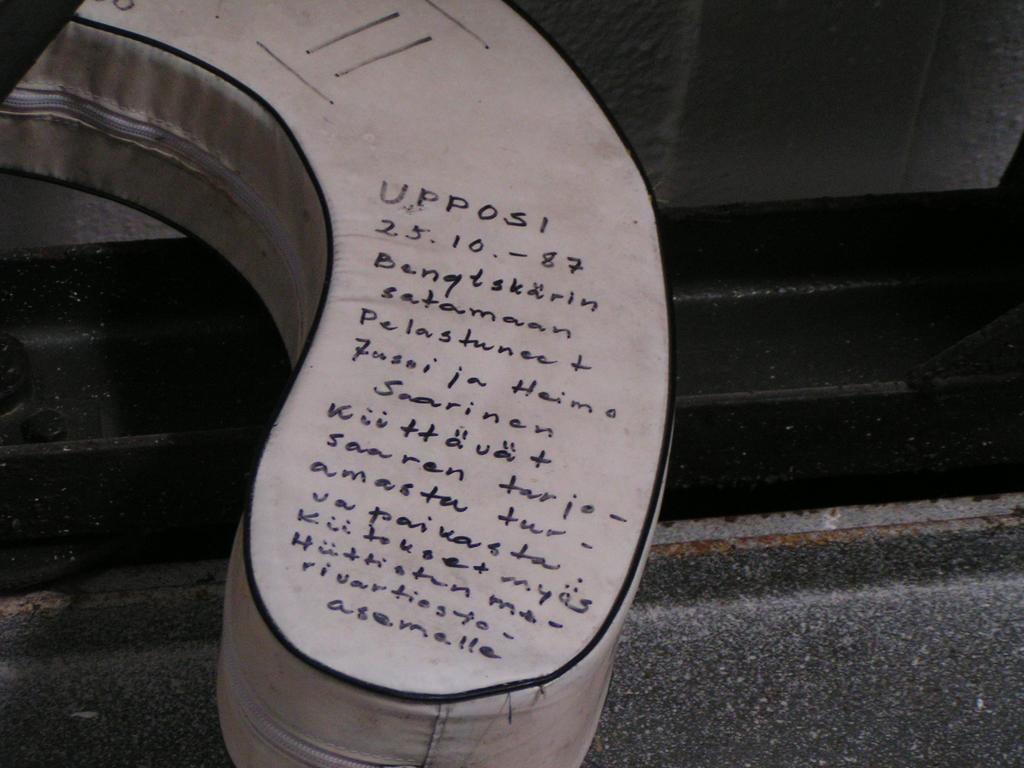 UPPOSI
25.10.-87
Bengtskärin
satamaan
Pelastuneet
Jussi ja Heimo
Saarinen
Kiittävät
saaren tarjo-
amasta tur-
va paikasta.
Kiitokset myös
Hiittisten me-
rivartiosto-
asemalle